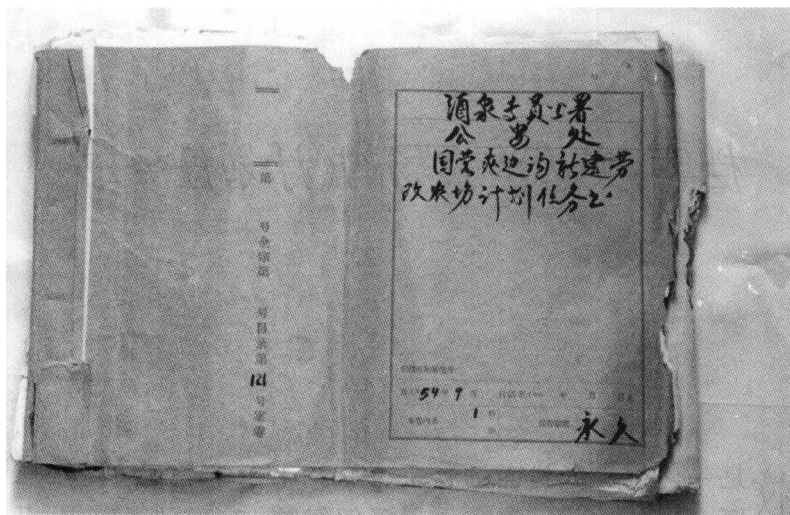 酒泉专员公署
公安处
国营夹边沟新建劳
改农场计划任务书
第 号全宗第 号目录第 121 号案卷
54年9月
年 月 日止
本卷内共 1
永久